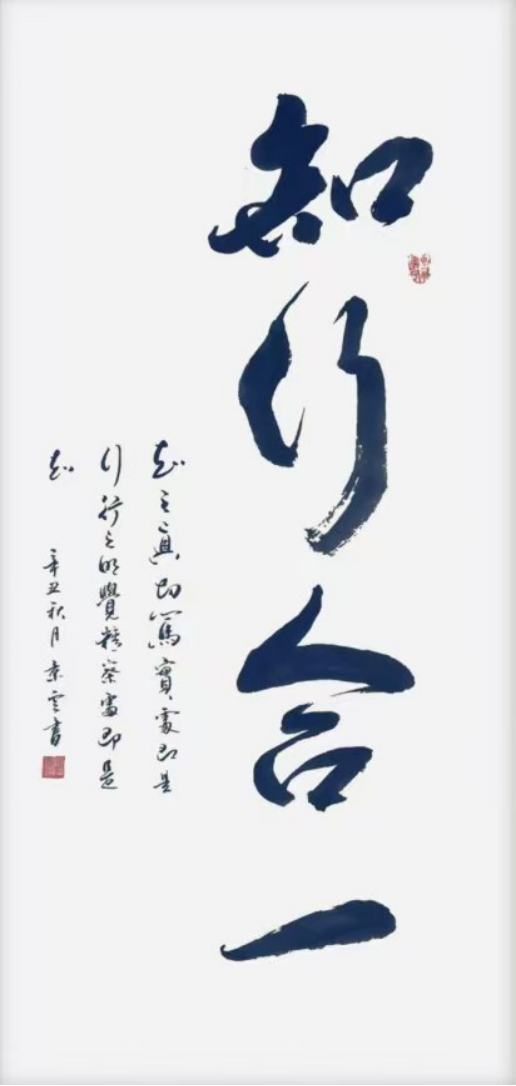 知行合一
知之真切篤實處即是
行行之明覺精察處即是
知 辛丑秋月素雲書